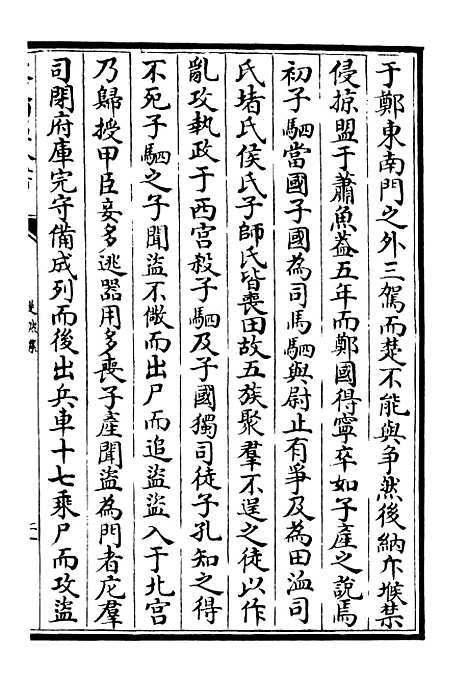 于鄭東南門之外三駕而楚不能與争然後納斥堠禁
侵掠盟于蕭魚蓋五年而鄭國得寧卒如子產之說焉
初子駟當國子國為司馬駟與尉止有爭及為田洫司
氏堵氏侯氏子師氏皆喪田故五族聚羣不逞之徒以作
亂攻執政于西宫殺子駟及子國獨司徒子孔知之得
不死子駟之子聞盜不儆而出尸而追盜盜入于北宮
乃歸授甲臣妾多逃器用多喪子產聞盜為門者庀羣
司閉府庫完守備成列而後出兵車十七乘尸而攻盜